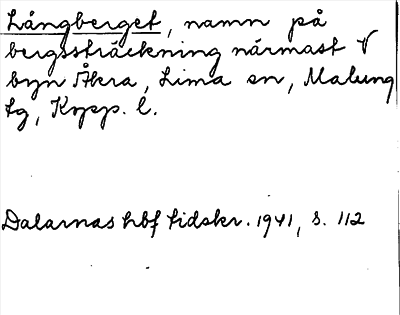 Långberget, namn på
bergssträckning närmast V
byn Åkra, Lima sn, Malung
tg, Kopp. l.
Dalarnas hbf tidskr. 1941, s. 112